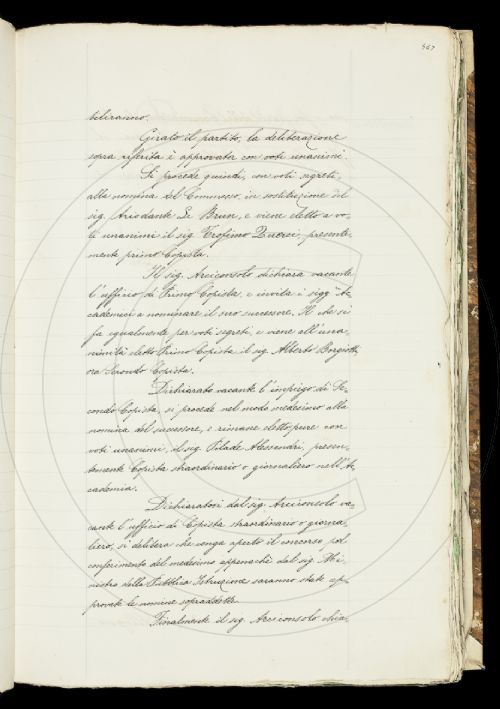 567
biliranno.
Girato il partito, la deliberazione
sopra riferita è approvata con voti unanimi.
Si procede quindi, con voti segreti,
alla nomina del Commesso, in sostituzione del
sig. Ariodante Le Brun, e viene eletto a vo-
ti unanimi il sig. Trofimo Querci, presente-
mente primo Copista.
Il sig. Arciconsolo dichiara vacante
l'ufficio di Primo Copista, e invita i sigg.ri Ac-
cademici a nominare il suo successore. Il che si
fa egualmente per voti segreti, e viene all'una-
nimità eletto Primo Copista il sig. Alberto Borgiotti
ora Secondo Copista.
Dichiarato vacante l'impiego di Se-
condo Copista, si procede nel modo medesimo alla
nomina del successore, e rimane eletto pure con
voti unanimi, il sig. Pilade Alessandri, presen-
temente Copista straordinario o giornaliero nell'Ac-
cademia.
Dichiaratosi dal sig. Arciconsolo va-
cante l'ufficio di Copista straordinario o giorna-
liero, si delibera che venga aperto il concorso pel
conferimento del medesimo appenachè dal sig. Mi-
nistro della Pubblica Istruzione saranno state ap-
provate le nomine sopraddette.
Finalmente il sig. Arciconsolo chia-